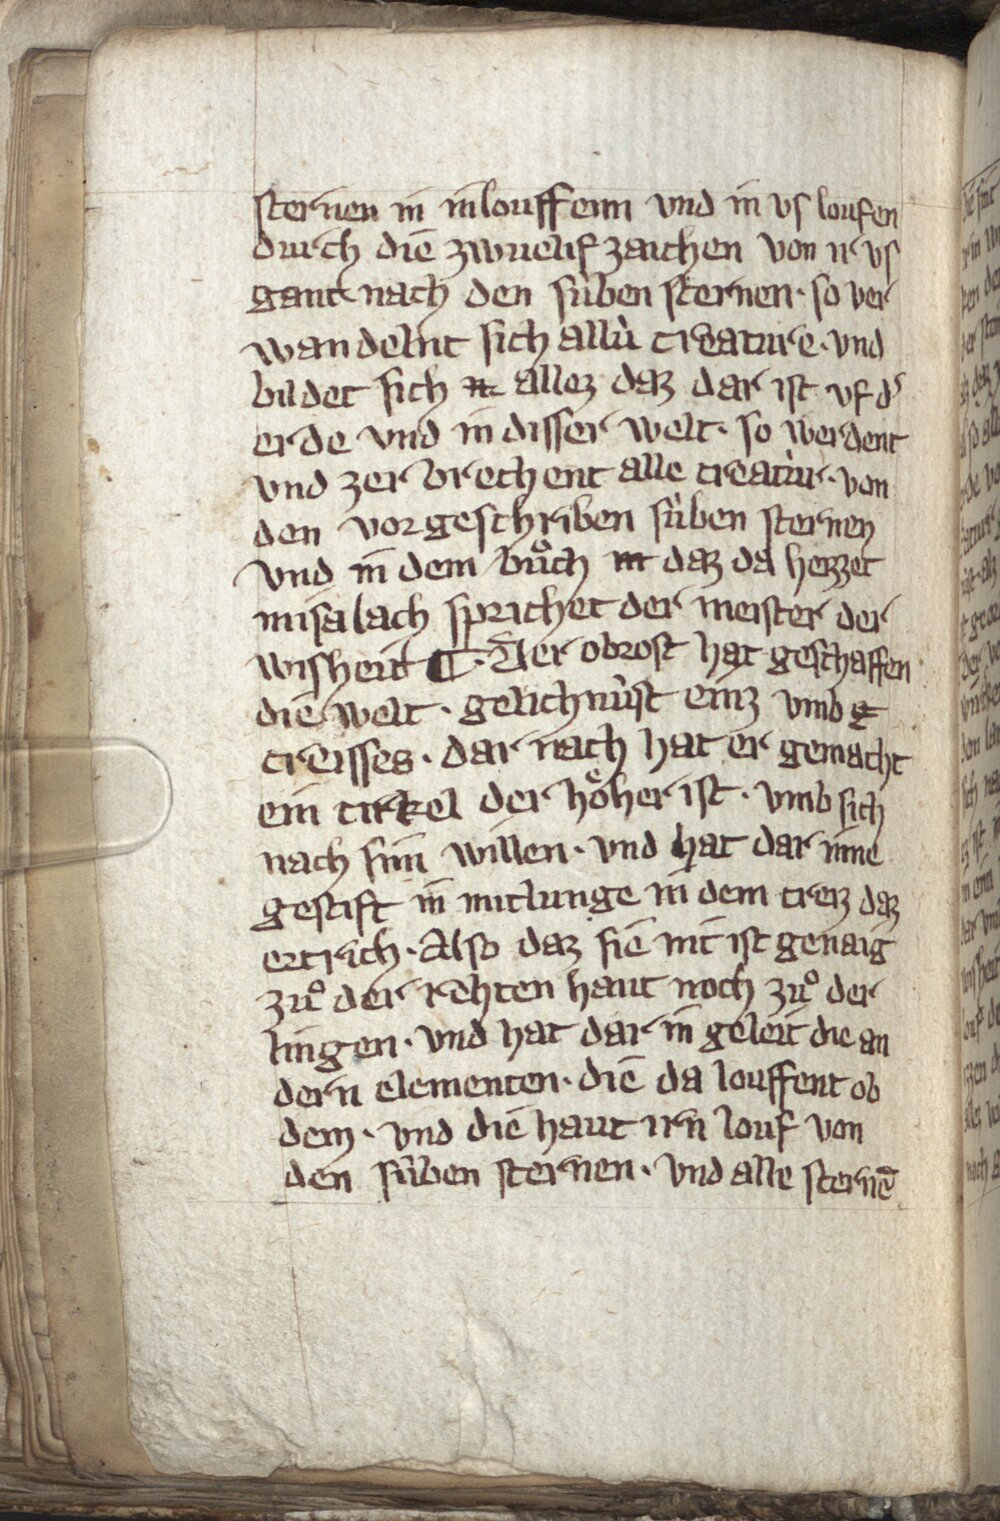 sternen in inlouffenn vnd in vs loufen
durch die zwuelif zaichen von ir vs
gant nach den súben sternen · so ver
wandelnt sich allú creature · vnd
bildet sich allez daz dar ist vf d
erde vnd in disser welt · so werdent
vnd zerbrechent alle creatúr · von
den vorgeschriben súben sternen
vnd in dem bůch daz da heizzet
misalach sprichet der meister der
wisheit ¶ · Der obrost hat geschaffen
die welt · gelichnúst einz vmb
creisses · dar nach hat er gemacht
ein cirkel der hoͤher ist · vmb sich
nach sim willen · vnd hat dar inne
gestift in mitlunge in dem creiz daz
ertrich · Also daz sie nit ist genaig
zů der rehten hant noch zů der
lingen · vnd hat dar in geleit die an
dern elementen · die da louffent ob
dem · vnd die hant irn louf von
den súben sternen · vnd alle sternē